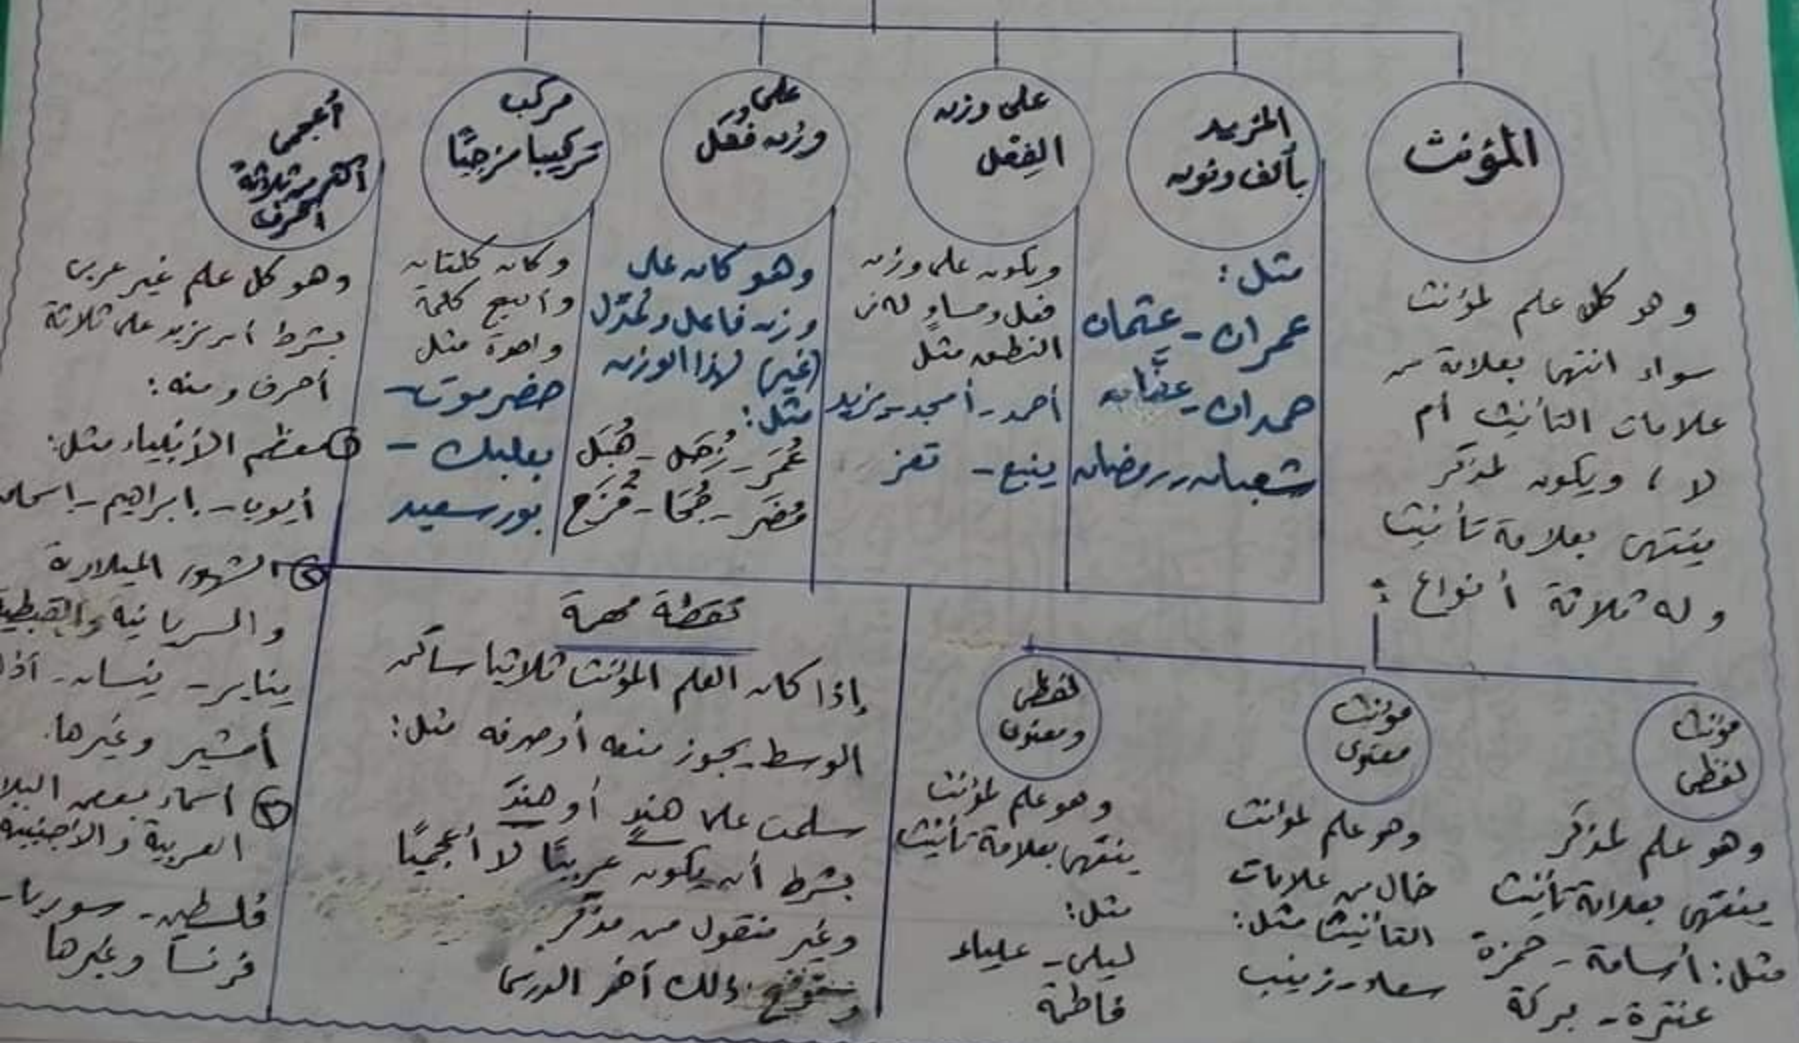 المؤنث
وهو كل علم لمؤنث
سواء انتهى بعلامة من
علامات التأنيث أم
لا، ويكون لمذكر
ينتهى بعلامة تأنيث
وله ثلاثة أنواع:
مؤنث
لفظى
وهو علم لمذكر
ينتهى بعلامة تأنيث
مثل: أسامة - حمزة
عنترة - بركة
مؤنث
معنوى
وهو علم لمؤنث
خال من علامات
التأنيث مثل:
سعاد - زينب
لفظى
ومعنوى
وهو علم لمؤنث
ينتهى بعلامة تأنيث
مثل:
ليلى - علياء
فاطمة
المزيد
بألف ونون
مثل:
عمران - عثمان
حمدان - عفان
شعبان - رمضان
على وزن
الفِعْل
ويكون على وزن
فعل ومساوٍ له فى
النطق مثل
أحمد - أمجد - يزيد
ينبع - تعز
على
وزن فُعَل
وهو كان على
وزن فاعل وعُدّل
(غير) لهذا الوزن
مثل:
عُمَر - زُحَل - هُبَل
مُضَر - جُحَا - قُزَح
مركب
تركيبا مزجيًّا
وكان كلمتان
وأصبح كلمة
واحدة مثل
حضرموت -
بعلبك -
بورسعيد
أعجمى
أكثر من ثلاثة
أحرف
وهو كل علم غير عربى
بشرط أن يزيد على ثلاثة
أحرف ومنه:
① معظم الأنبياء مثل:
أيوب - إبراهيم - إسحاق
② الشهور الميلادية
والسريانية والقبطية
يناير - نيسان -
أمشير وغيرها.
③ أسماء بعض البلاد
العربية والأجنبية
فلسطين - سوريا -
فرنسا وغيرها
نقطة مهمة
إذا كان العلم المؤنث ثلاثيا ساكن
الوسط يجوز منعه أو صرفه مثل:
سلمت على هندٍ أو هندَ
بشرط أن يكون عربيًّا لا أعجميًّا
وغير منقول من مذكر
ذلك أخر الدرس